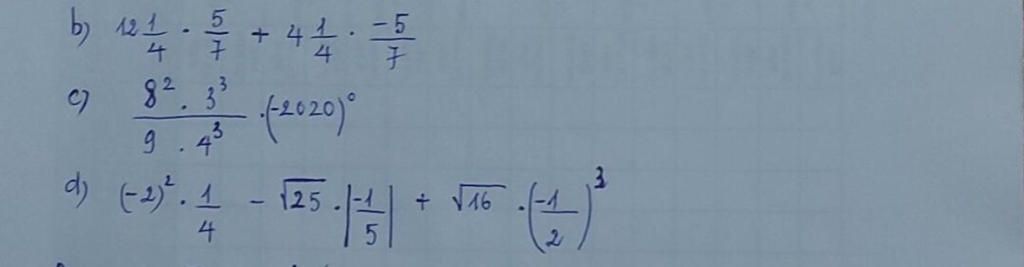 b) 12 1/4 . 5/7 + 4 1/4 . -5/7
c) 8² . 3³ / 9 . 4³ . (-2020)⁰
d) (-2)² . 1/4 - √25 . |-1/5| + √16 . (-1/2)³